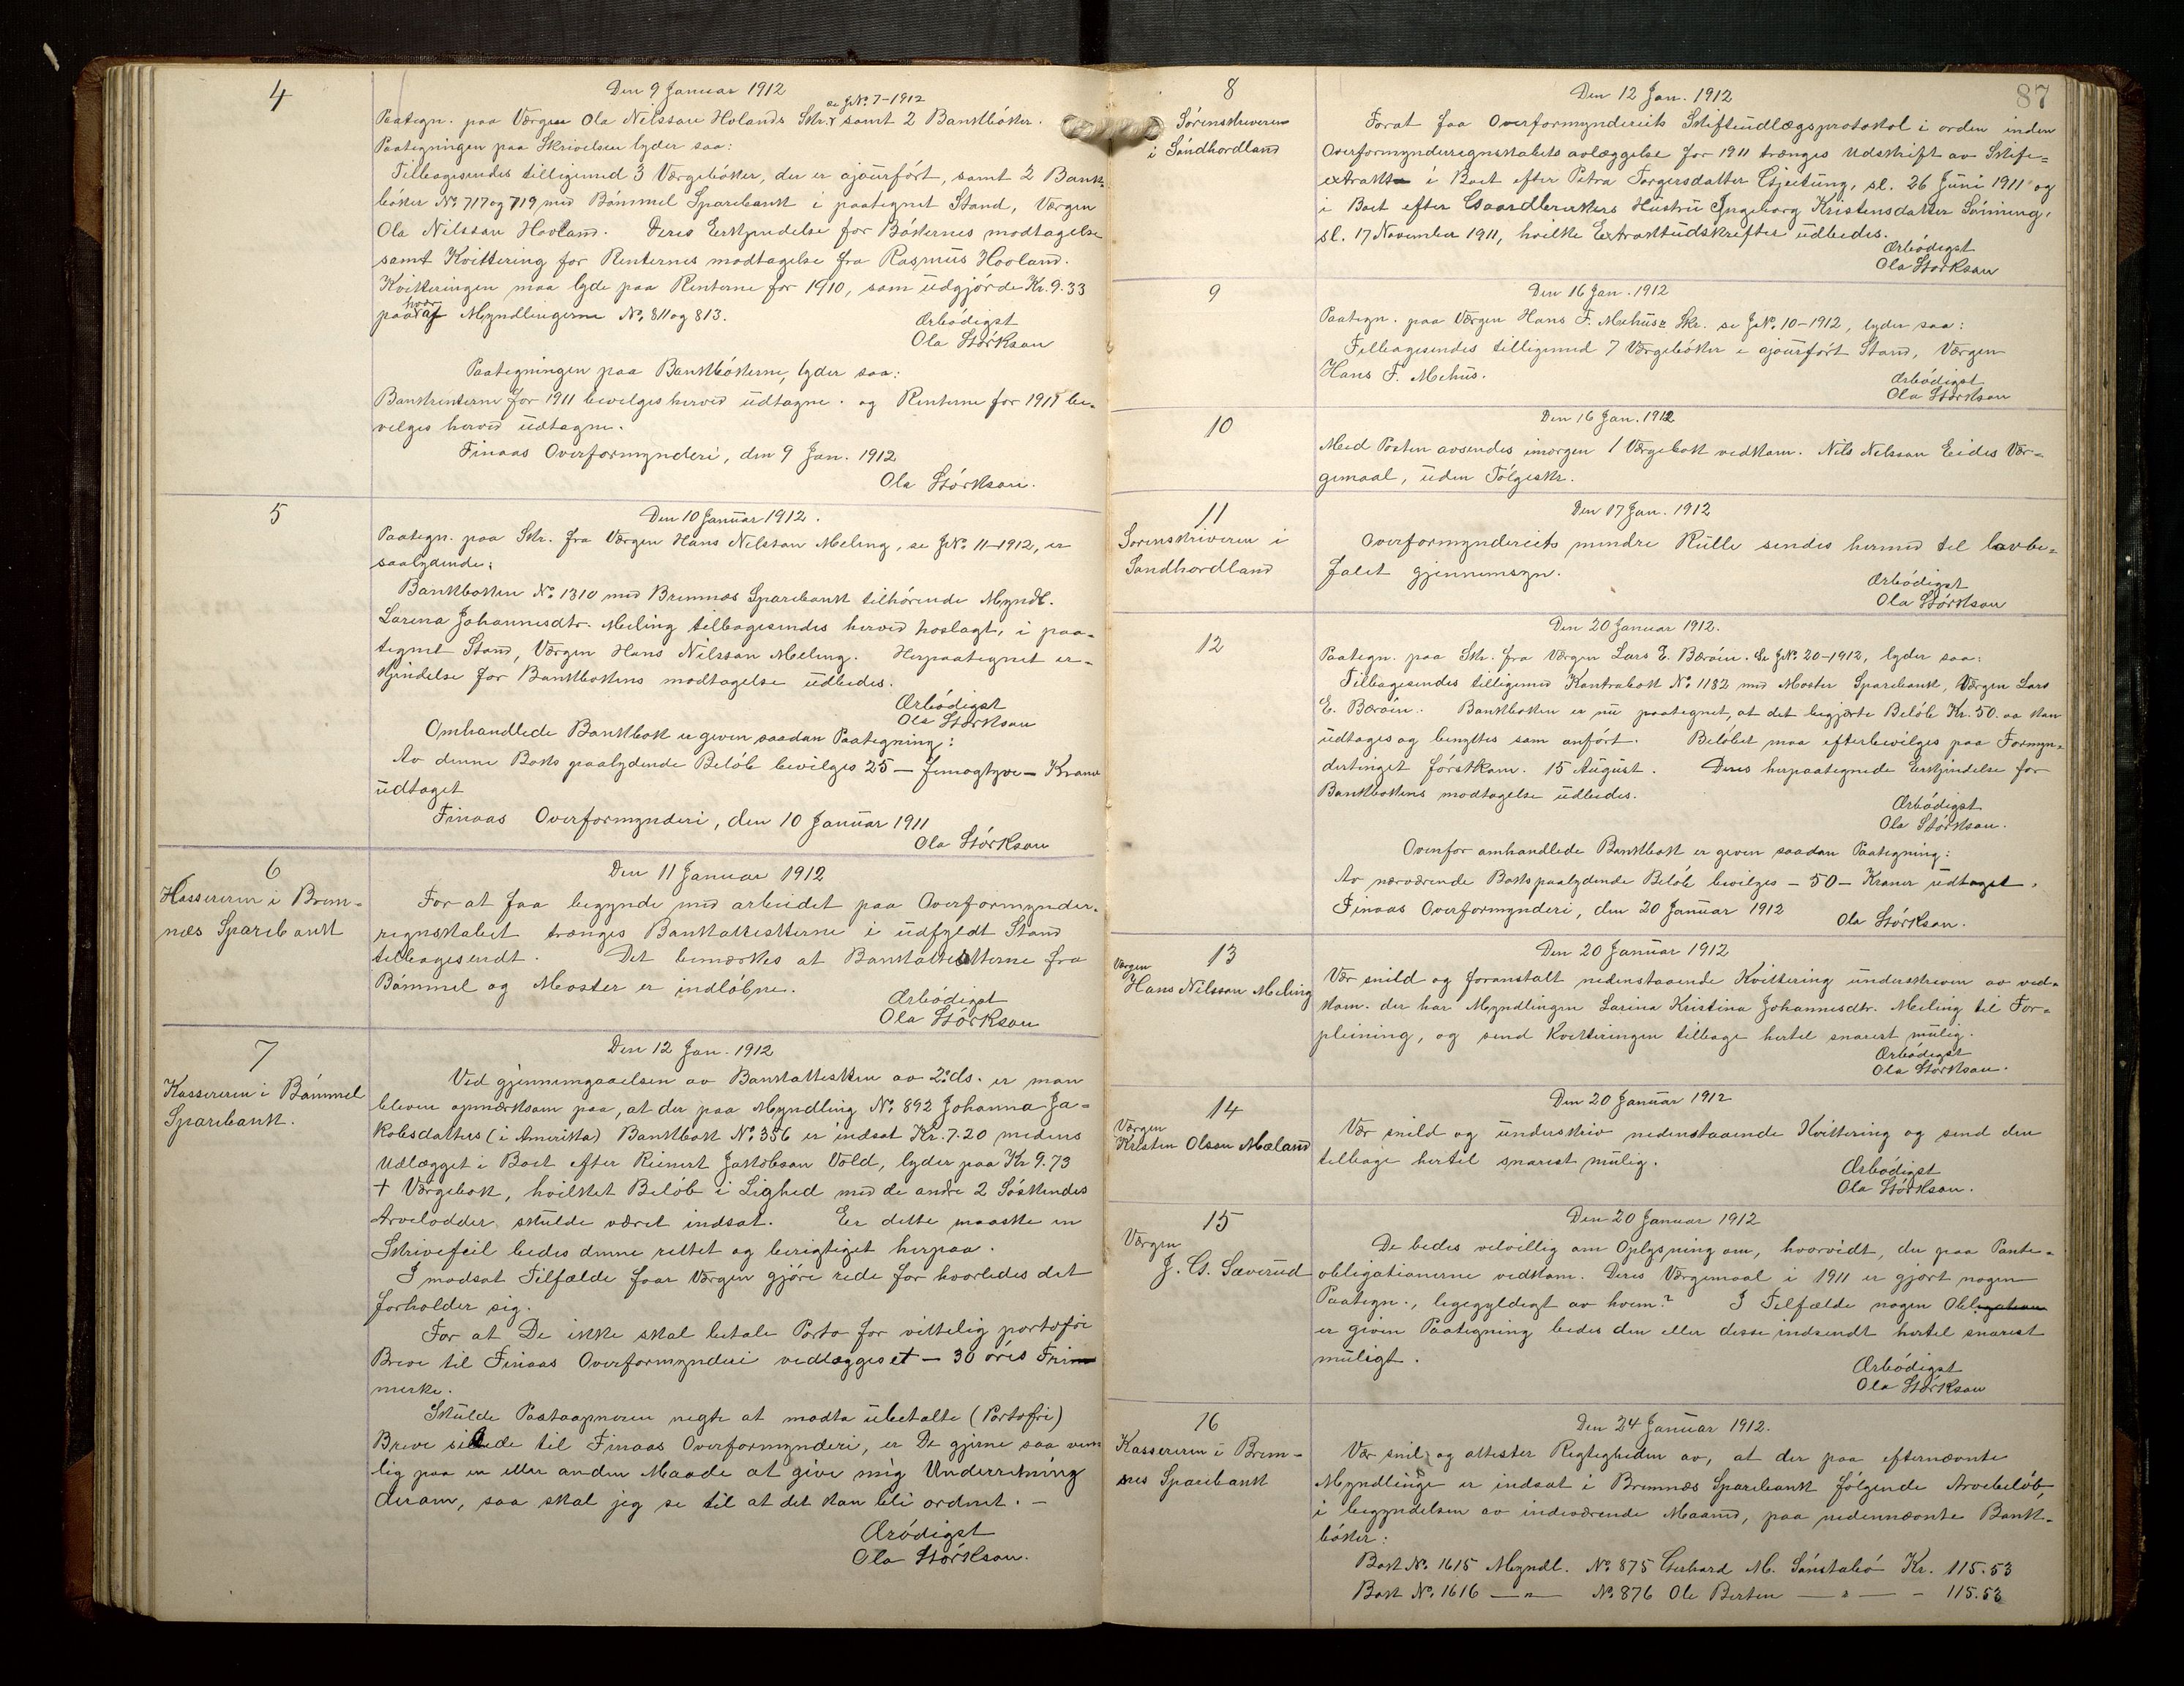 4
Den 9 Januar 1912
se J.No. 7-1912
Paategn. paa Værgen Ola Nilsson Holands Skr. samt 2 Bankbøker.
Paategningen paa Skrivelsen lyder saa:
Tilbagesendes tilligemed 3 Værgebøker, der er ajourført, samt 2 Bank-
bøker No 717 og 719 med Bømmel Sparebank i paategnet Stand, Værgen
Ola Nilsson Hovland. Deres Erkjendelse for Bøkernes modtagelse
samt Kvittering for Renternes modtagelse fra Rasmus Hovland.
Kvitteringen maa lyde paa Renterne for 1910, som udgjørde Kr. 9.33
paa hver af Myndlingerne No. 811 og 813.
Ærbødigst
Ola Størkson
Paategningen paa Bankbøkerne, lyder saa:
Bankrenterne for 1911 bevilges herved udtagne. og Renterne for 1911 be-
vilges herved udtagne.
Finaas Overformynderi, den 9 Jan. 1912
Ola Størkson.
5
Den 10 Januar 1912.
Paategn. paa Skr. fra Værgen Hans Nilsson Meling, se J.No. 11-1912, er
saalydende:
Bankboken No. 1310 med Bremnes Sparebank tilhørende Myndl.
Larina Johannesdtr. Meling tilbagesendes herved hoslagt, i paa-
tegnet Stand, Værgen Hans Nilsson Meling. Herpaategnet er-
kjendelse for Bankbokens modtagelse udbedes.
Ærbødigst
Ola Størkson
Omhandlede Bankbok er given saadan Paategning:
Av denne Boks paalydende Beløb bevilges 25 — femogtyve — Kroner
udtaget
Finaas Overformynderi, den 10 Januar 1911
Ola Størkson
6
Kassereren i Brem-
nes Sparebank
Den 11 Januar 1912
For at faa begynde med arbeidet paa Overformynder-
regnskabet trænges Bankattesterne i udfyldt Stand
tilbagesendt. Det bemærkes at Bankattesterne fra
Bømmel og Moster er indløbne.
Ærbødigst
Ola Størkson
7
Kassereren i Bømmel
Sparebank.
Den 12 Jan. 1912
Ved gjennemgaaelsen av Bankattesten av 2. ds. er man
bleven opmærksom paa, at der paa Myndling No. 892 Johanna Ja-
kobsdatters (i Amerika) Bankbok No. 356 er indsat Kr. 7.20 medens
Udlægget i Boet efter Reinert Jakobson Vold, lyder paa Kr 9.73
+ Værgebok, hvilket Beløb i Lighed med de andre 2 Søskendes
Arvelodder, skulde været indsat. Er dette maaske en
Skrivefeil bedes denne rettet og berigtiget herpaa.
I modsat Tilfælde faar Værgen gjøre rede for hvorledes det
forholder sig.
For at De ikke skal betale Porto for vittelig portofri
Breve til Finaas Overformynderi vedlægges et — 30 øres Fri
merke.
Skulde Postaapneren negte at modta ubetalte (Portofri)
Breve sendte til Finaas Overformynderi, er De gjerne saa ven
lig paa en eller anden Maade at give mig Underretning
derom, saa skal jeg se til at det kan bli ordnet. —
Ærødigst
Ola Størkson.
87
8
Sørenskriveren
i Søndhordland
Den 12 Jan. 1912
Forat faa Overformynderiets Skifteudlægsprotokol i orden inden
Overformynderregnskabets avlæggelse for 1911 trænges Udskrift av Skifte-
extrakt i Boet efter Petra Torgersdatter Gjeitung, sl. 26 Juni 1911 og
i Boet efter Gaardbrukers Hustru Ingeborg Kristensdatter Sønning,
sl. 17 November 1911, hvilke Extraktudskrifter udbedes.
Ærbødigst
Ola Størkson
9
Den 16 Jan. 1912
Paategn. paa Værgen Hans F. Mehus's Skr. se J.No. 10-1912, lyder saa:
Tilbagesendes tilligemed 7 Værgebøker i ajourført Stand, Værgen
Hans F. Mehus.
Ærbødigst
Ola Størkson
10
Den 16 Jan. 1912
Med Posten avsendes imorgen 1 Værgebok vedkom. Nils Nelsson Eides Vær-
gemaal, uden Følgeskr.
11
Sørenskriveren i
Søndhordland
Den 17 Jan. 1912
Overformynderiets mindre Rulle sendes hermed til lovbe-
falet gjennemsyn.
Ærbødigst
Ola Størkson
12
Den 20 Januar 1912.
Paategn. paa Skr. fra Værgen Lars E. Bærøen. Se J.No. 20-1912, lyder saa:
Tilbagesendes tilligemed Kontrabok No. 1182 med Moster Sparebank, Værgen Lars
E. Bærøen. Bankboken er nu paategnet, at det begjærte Beløb Kr. 50.00 kan
udtages og benyttes som anført. Beløbet maa efterbevilges paa Formyn-
dertinget førstkom. 15 August. Deres herpaategnede Erkjendelse for
Bankbokens modtagelse udbedes.
Ærbødigst
Ola Størkson.
Ovenfor omhandlede Bankbok er given saadan Paategning:
Av nærværende Boks paalydende Beløb bevilges — 50 — Kroner udtaget.
Finaas Overformynderi, den 20 Januar 1912
Ola Størkson.
13
Værgen
Hans Nilsson Meling
Den 20 Januar 1912
Vær snild og foranstalt nedenstaaende Kvittering underskreven av ved-
kom. der har Myndlingen Larina Kristina Johannesdtr. Meling til For-
pleining, og send Kvitteringen tilbage hertil snarest mulig.
Ærbødigst
Ola Størkson.
14
Værgen
Kristen Olson Mæland
Den 20 Januar 1912
Vær snild og underskriv nedenstaaende Kvittering og send den
tilbage hertil snarest mulig.
Ærbødigst
Ola Størkson.
15
Værgen
J. G. Sæverud
Den 20 Januar 1912
De bedes velvillig om Oplysning om, hvorvidt, der paa Pante-
obligationerne vedkom. Deres Værgemaal i 1911 er gjort nogen
Paategn., ligegyldigt av hvem? I Tilfælde nogen Obligation
er given Paategning bedes den eller desse indsendt hertil snarest
muligt.
Ærbødigst
Ola Størkson
16
Kassereren i Brem-
nes Sparebank
Den 24 Januar 1912.
Vær snil og attester Rigtigheden av, at der paa efternævnte
Myndlinge er indsat i Bremnes Sparebank følgende Arvebeløb,
i begyndelsen av indeværende Maaned, paa nedennævnte Bank-
bøker:
Bok No. 1615 Myndl. No. 875 Gerhard M. Sønstabø Kr. 115.53
Bok No. 1616 —„— No. 876 Ole Berten —„— - 115.53